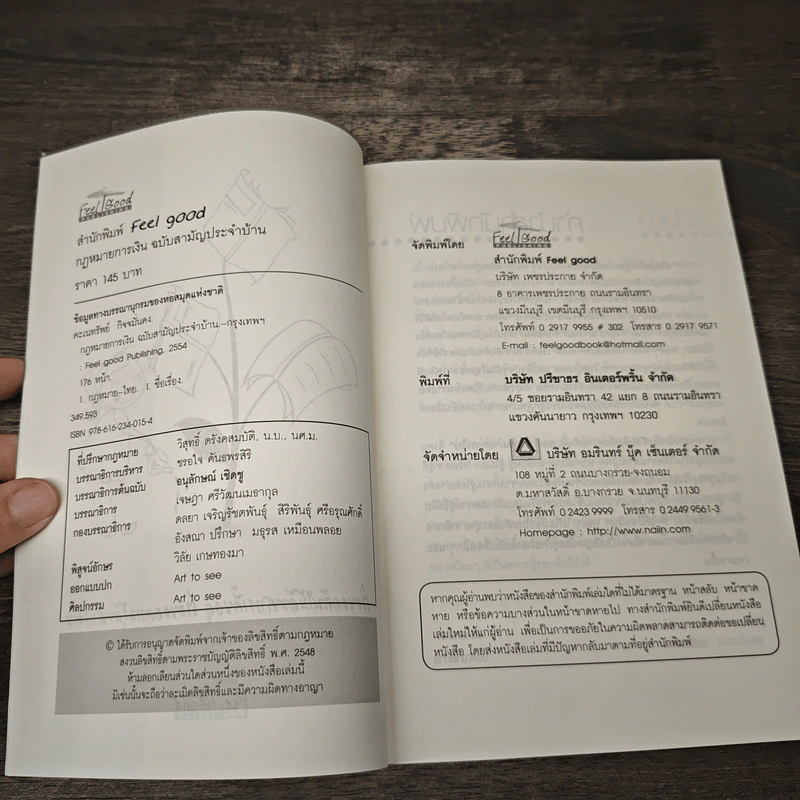 Feel Good
PUBLISHING
สำนักพิมพ์ Feel good
กฎหมายการเงิน ฉบับสามัญประจำบ้าน
ราคา 145 บาท
ข้อมูลทางบรรณานุกรมของหอสมุดแห่งชาติ
คะเนทรัพย์ กิจจมั่นคง.
กฎหมายการเงิน ฉบับสามัญประจำบ้าน.--กรุงเทพฯ
: Feel good Publishing, 2554
176 หน้า.
1. กฎหมาย--ไทย. I. ชื่อเรื่อง.
349.593
ISBN 978-616-234-015-4
ที่ปรึกษากฎหมาย วิสุทธิ์ ตรังคสมบัติ, น.บ., นศ.ม.
บรรณาธิการบริหาร ชรอใจ ตันธพรสิริ
บรรณาธิการต้นฉบับ อนุลักษณ์ เชิดชู
บรรณาธิการ เจษฎา ศรีวัฒนเมธากุล
กองบรรณาธิการ ดลยา เจริญรัชตพันธุ์ สิริพันธุ์ ศรีอรุณศักดิ์
อังสณา ปรึกษา มธุรส เหมือนพลอย
พิสูจน์อักษร วิลัย เกษทองมา
ออกแบบปก Art to see
ศิลปกรรม Art to see
© ได้รับการอนุญาตจัดพิมพ์จากเจ้าของลิขสิทธิ์ตามกฎหมาย
สงวนลิขสิทธิ์ตามพระราชบัญญัติลิขสิทธิ์ พ.ศ. 2548
ห้ามลอกเลียนส่วนใดส่วนหนึ่งของหนังสือเล่มนี้
มิเช่นนั้นจะถือว่าละเมิดลิขสิทธิ์และมีความผิดทางอาญา
จัดพิมพ์โดย Feel Good
PUBLISHING
สำนักพิมพ์ Feel good
บริษัท เพชรประกาย จำกัด
8 อาคารเพชรประกาย ถนนรามอินทรา
แขวงมีนบุรี เขตมีนบุรี กรุงเทพฯ 10510
โทรศัพท์ 0 2917 9955 # 302 โทรสาร 0 2917 9571
E-mail : feelgoodbook@hotmail.com
พิมพ์ที่ บริษัท ปรีชาธร อินเตอร์พริ้น จำกัด
4/5 ซอยรามอินทรา 42 แยก 8 ถนนรามอินทรา
แขวงคันนายาว กรุงเทพฯ 10230
จัดจำหน่ายโดย บริษัท อมรินทร์ บุ๊ค เซ็นเตอร์ จำกัด
108 หมู่ที่ 2 ถนนบางกรวย-จงถนอม
ต.มหาสวัสดิ์ อ.บางกรวย จ.นนทบุรี 11130
โทรศัพท์ 0 2423 9999 โทรสาร 0 2449 9561-3
Homepage : http://www.naiin.com
หากคุณผู้อ่านพบว่าหนังสือของสำนักพิมพ์เล่มใดที่ไม่ได้มาตรฐาน หน้าสลับ หน้าขาด
หาย หรือข้อความบางส่วนในหน้าขาดหายไป ทางสำนักพิมพ์ยินดีเปลี่ยนหนังสือ
เล่มใหม่ให้แก่ผู้อ่าน เพื่อเป็นการขออภัยในความผิดพลาดสามารถติดต่อขอเปลี่ยน
หนังสือ โดยส่งหนังสือเล่มที่มีปัญหากลับมาตามที่อยู่สำนักพิมพ์